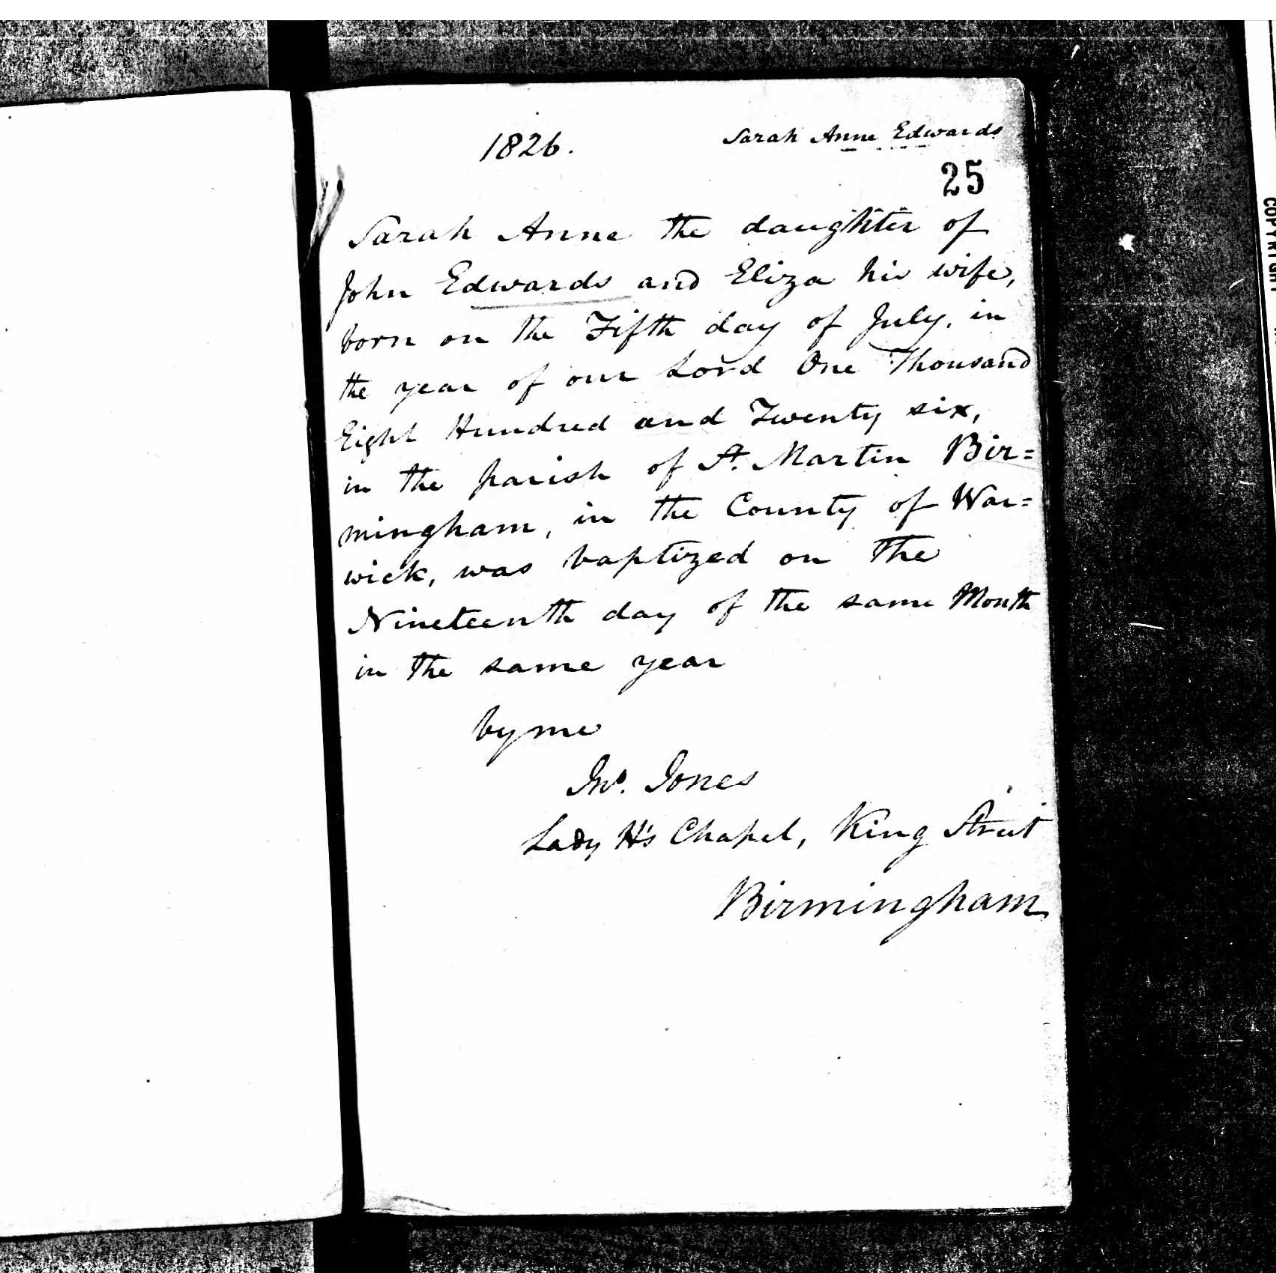 1826.
Sarah Anne Edwards
25
Sarah Anne the daughter of
John Edwards and Eliza his wife,
born on the Fifth day of July, in
the year of our Lord One Thousand
Eight Hundred and Twenty six,
in the parish of St. Martin Bir=
mingham, in the County of War=
wick, was baptized on the
Nineteenth day of the same Month
in the same year
by me
Jno. Jones
Lady H's Chapel, King Street
Birmingham
COPYRIGHT